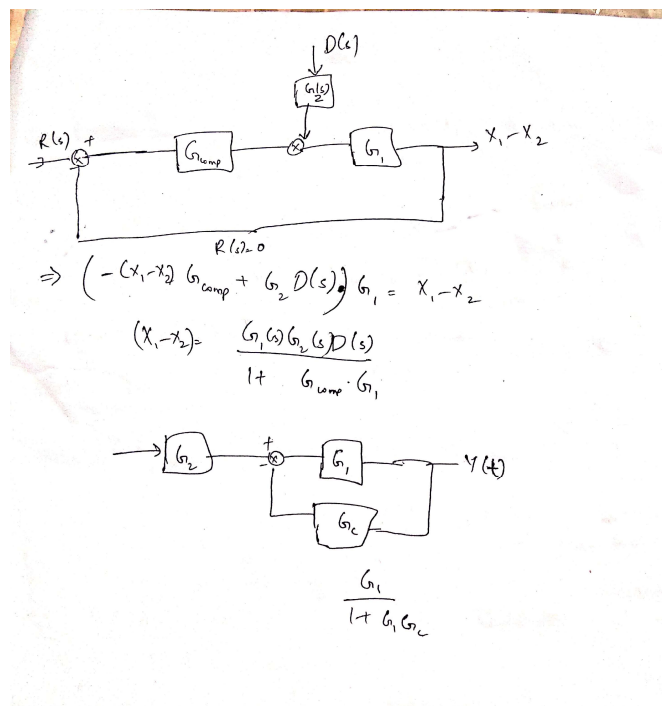 D(s)
G(s)
2
R(s) +
-
G_comp
G_1
X_1 - X_2
R(s)=0
⇒ (-(X_1-X_2) G_comp + G_2 D(s)) G_1 = X_1 - X_2
(X_1-X_2) = G_1(s) G_2(s) D(s)
1 + G_comp · G_1
+
-
G_2
G_1
Y(t)
G_c
G_1
1 + G_1 G_c